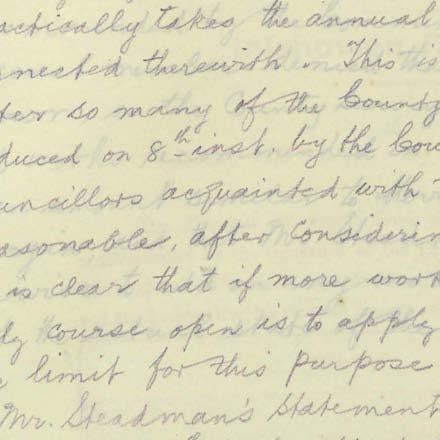 actically takes the annual
nnected therewith. This is
ter so many of the County
duced on 8th inst. by the Cou
uncillors acquainted with
easonable, after considerin
is clear that if more work
ly course open is to apply
limit for this purpose
Mr. Steadman's statement